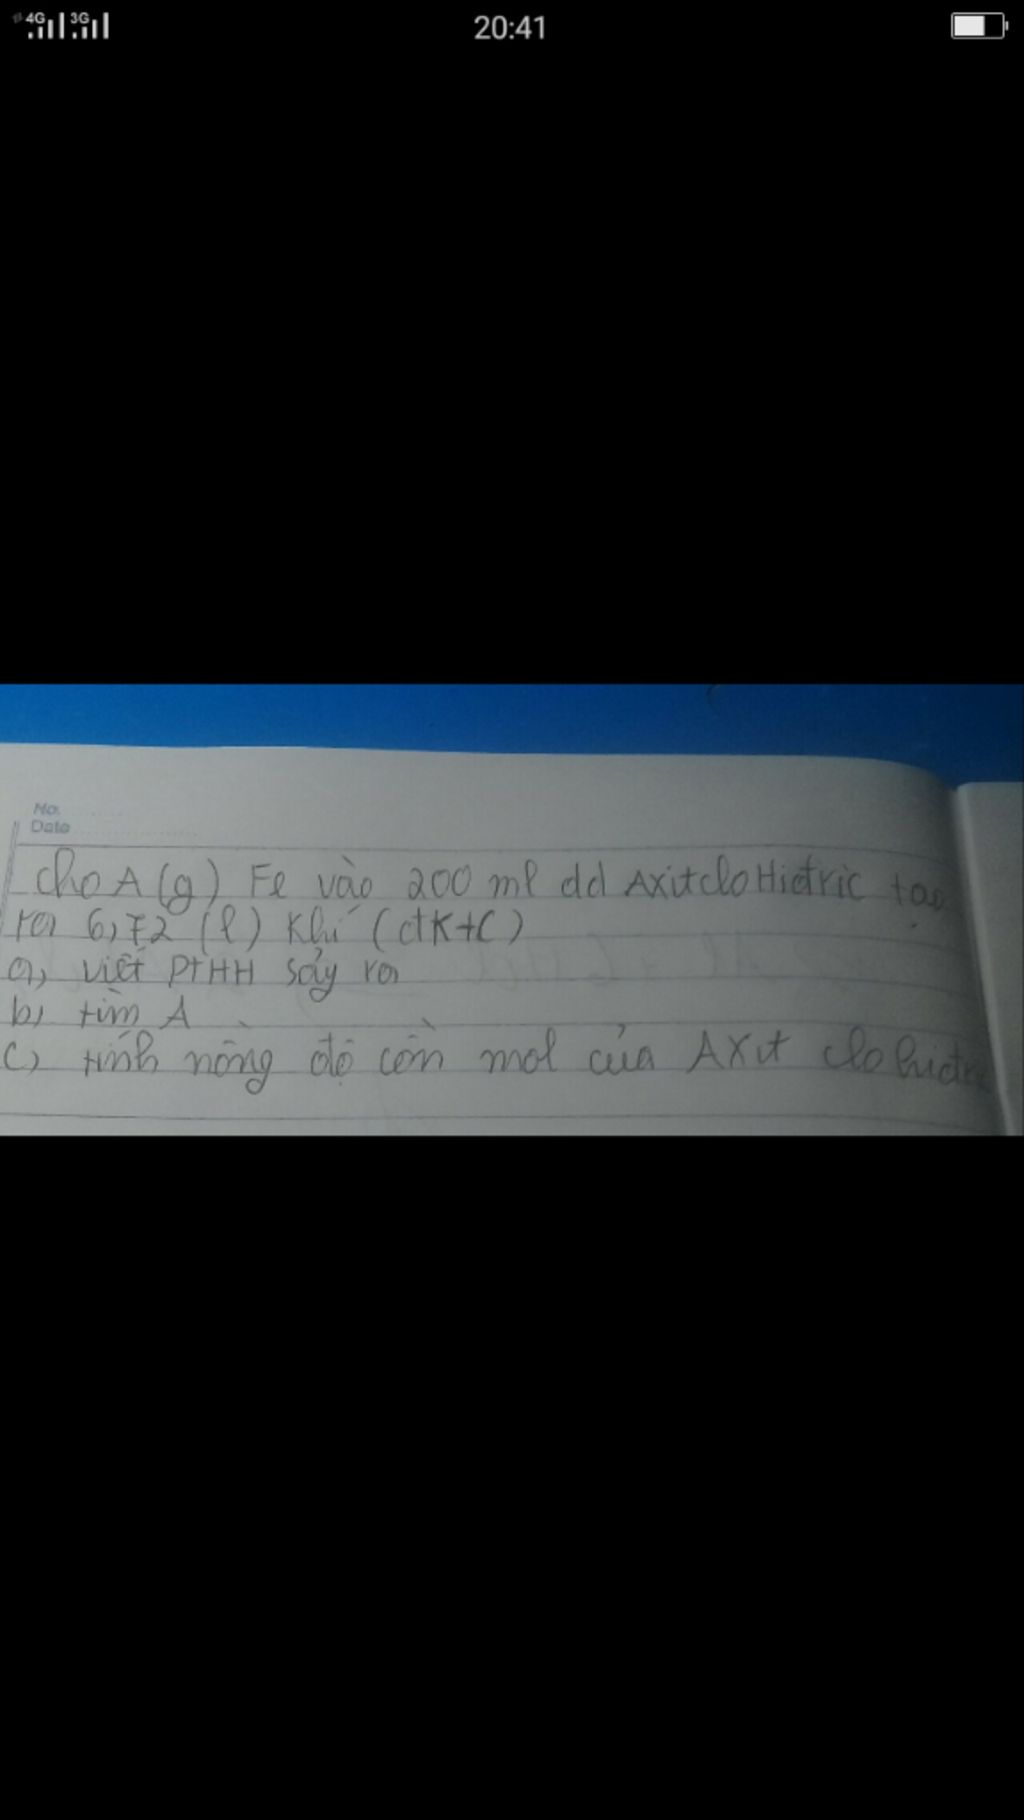 4G 3G 20:41
No.
Date
Cho A (g) Fe vào 200 ml dd AxitcloHiđric tạo
ra 6,72 (l) Khí (đktc)
a, viết PTHH sảy ra
b, tìm A
c) tính nồng độ còn mol của AXit clo hiđric